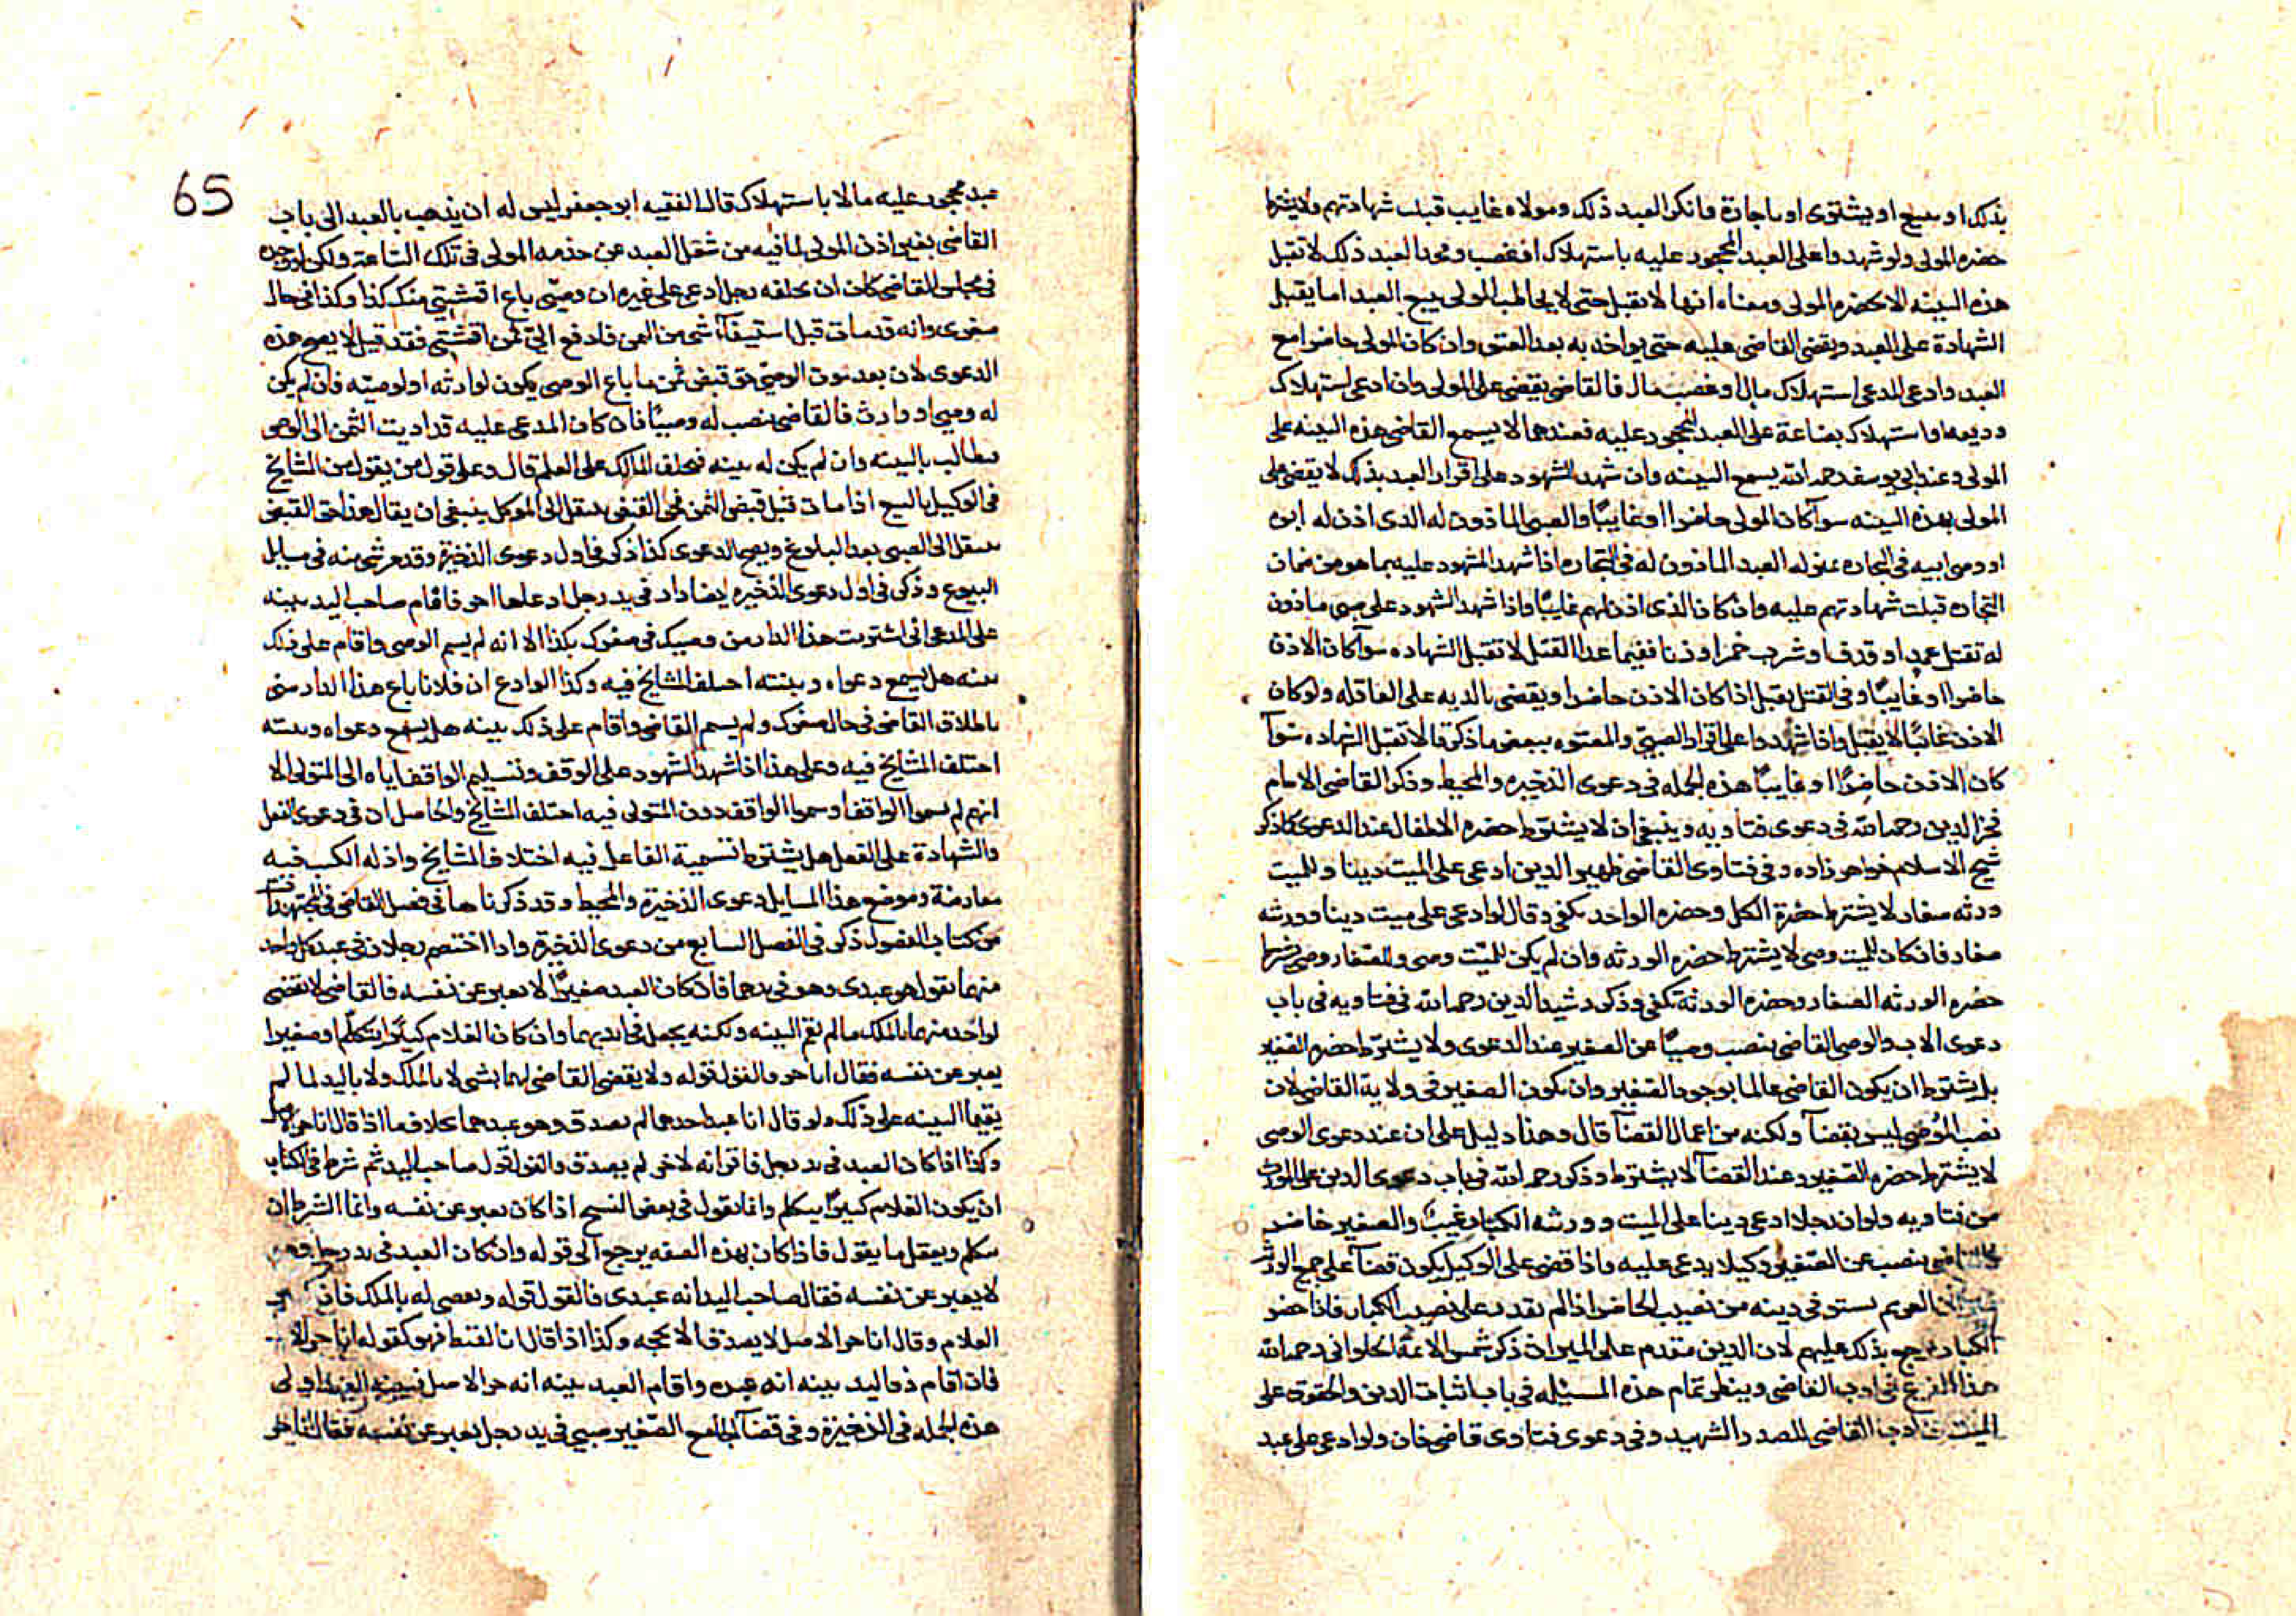 بذلك او ببيع او يشتوى او باجارة وانكر العبد ذلك ومولاه غايب قبلت شهادتهم ولايشترط
حضره المولى ولو شهدوا على العبد المحجور عليه باستهلاك او غصب وجحد العبد ذلك لا تقبل
هذه البينه الا بحضره المولى ومعناه انها لا تقبل حتى لا يخاطب المولى ببيع العبد اما يقبل
الشهادة على العبد ويقضى القاضى عليه حتى يواخذ به بعد العتق وان كان المولى حاضرا مع
العبد وادعى المدعى استهلاك مال او غصب مال فالقاضى يقضى على المولى وان ادعى استهلاك
وديعه او استهلاك بضاعة على العبد المحجور عليه فعندهما لا يسمع القاضى هذه البينه على
المولى وعند ابى يوسف رحمه الله يسمع البينه وان شهد الشهود على اقرار العبد بذلك لا يقضى على
المولى بهذه البينه سوآ كان المولى حاضرا او غايبًا والصبى الماذون له الذى اذن له ابوه
او وصى ابيه فى التجاره بمنزله العبد الماذون له فى التجاره اذا شهد الشهود عليه بما هو من ضمان
التجاره قبلت شهادتهم عليه وان كان الذى اذن لهم غايبًا واذا شهد الشهود على صبى ماذون
له بقتل عمد او قذف او شرب خمر او زنا ففيما عدا القتل لا تقبل الشهاده سوآ كان الاذن
حاضرا او غايبًا وفى القتل يقبل اذا كان الاذن حاضرا ويقضى بالديه على العاقله ولو كان
الاذن غائبًا لا يقبل واذا شهدوا على اقرار الصبىّ والمعتوه ببعض ما ذكرنا لا تقبل الشهاده سوآ
كان الاذن حاضرًا او غايبًا هذه الجمله فى دعوى الذخيره والمحيط وذكر القاضى الامام
فخر الدين رحمه الله فى دعوى فتاويه وينبغى ان لا يشترط حضره الاطفال عند الدعوى كذا ذكر
شيخ الاسلام خواهر زاده وفى فتاوى القاضى ظهير الدين ادعى على الميت دينا وللميت
ورثه صغار لا يشترط حضرة الكل وحضره الواحد تكفى وقال لو ادعى على ميت دينا وورثه
صغار فان كان للميت وصى لا يشترط حضره الورثه وان لم يكن للميّت وصى وللصّغار وصى
حضره الورثه الصغار وحضره الورثة تكفى وذكر رشيد الدين رحمه الله فى فتاويه فى باب
دعوى الاب والوصى القاضى ينصب وصيًا عن الصغير عند الدعوى ولا يشترط حضره الصغير
بل يشترط ان يكون القاضى عالما بوجود الصّغير وان يكون الصغير فى ولاية القاضى لان
نصب الوصى ليس بقضآ ولكنه من اعمال القضآ قال وهذا دليل على ان عند دعوى الوصى
لا يشترط حضره الصّغير وعند القضآ لا يشترط وذكر رحمه الله فى باب دعوى الدين على المورث
من فتاويه ولو ان رجلا ادعى دينا على الميت وورثه الكبار غيبٌ والصغير حاضر
ينصب عن الصّغير وكيلا يدعى عليه واذا قضى على الوكيل يكون قضآ على جميع الورثه
الغريم يستوفى دينه من نصيب الحاضر اذا لم يقدر على نصيب الكبار فاذا حضر
الكبار يرجع بذلك عليهم لان الدين مقدم على الميراث ذكر شمس الائمة الحلوانى رحمه الله
هذا الفرع فى ادب القاضى وينظر تمام هذه المسئله فى باب اثبات الدين والحقوق على
الميت من ادب القاضى للصدر الشهيد وفى دعوى فتاوى قاضى خان ولو ادعى على عبد
65
عبد محجور عليه مالا باستهلاك قال الفقيه ابو جعفر ليس له ان يذهب بالعبد الى باب
القاضى بغير اذن المولى لما فيه من شغل العبد عن خدمه المولى فى تلك الساعة ولكن لو وجده
فى مجلس القاضى كان ان يحلفه رجل ادعى على غيره ان وصيّى باع اقمشتى منك كذا وكذا فى حال
صغرى وانه قد مات قبل استيفآ شى من الثمن فادفع الىّ ثمن اقمشتى فقد قيل لا يصح هذه
الدعوى لان بعد موت الوصى حق قبض ثمن ما باع الوصى يكون لوارثه او لوصيّه فان لم يكن
له وصى او وارث فالقاضى ينصب له وصيًا فان كان المدعى عليه قد اديت الثمن الى الوصى
يطالب بالبينه وان لم يكن له بينه فيحلف المالك على العلم قال وعلى قول من يقول من المشايخ
فى الوكيل بالبيع اذا مات قبل قبض الثمن فحق القبض ينتقل الى الموكل ينبغى ان يقال هذا حق القبض
ينتقل الى الصبى بعد البلوغ ويصح الدعوى كذا ذكر فى اول دعوى الذخيرة وقد مر شى منه فى مسايل
البيوع وذكر فى اول دعوى الذخيره ايضا دار فى يد رجل ادعاها اخر فاقام صاحب اليد بينه
على المدعى انى اشتريت هذا الدار من وصيك فى صغرك بكذا الا انه لم يسم الوصى واقام على ذلك
بينه هل يسمع دعواه وبينته اختلف المشايخ فيه وكذا لو ادعى ان فلانا باع هذا الدار منى
باطلاق القاضى فى حال صغرك ولم يسم القاضى واقام على ذلك بينه هل يسمع دعواه وبينته
اختلف المشايخ فيه وعلى هذا اذا شهد الشهود على الوقف وتسليم الواقف اياه الى المتولى الا
انهم لم يسموا الواقف او سموا الواقف دون المتولى فيه اختلف المشايخ والحاصل ان فى دعوى الفعل
والشهادة على الفعل هل يشترط تسمية الفاعل فيه اختلاف المشايخ وادله الكتب فيه
متعارضة وموضع هذا المسايل دعوى الذخيرة والمحيط وقد ذكرناها فى فصل القاضى فى المجتهدات
من كتاب الفصول ذكر فى الفصل السابع من دعوى الذخيرة واذا اختصم رجلان فى عبد كل واحد
منهما يقول هو عبدى وهو فى يدهما فان كان العبد صغيرًا لا يعبر عن نفسه فالقاضى لا يقضى
لواحد منهما بالملك ما لم يقم البينه ولكنه يجعل فى ايديهما وان كان الغلام كبيرًا يتكلم او صغيرا
يعبر عن نفسه فقال انا حر فالقول قوله ولا يقضى القاضى لهما بشى لا بالملك ولا باليد لما لم
يقيما البينه على ذلك ولو قال انا عبد احدهما لم يصدق وهو عبدهما بخلاف ما اذا قال انا حر الاصل
وكذا اذا كان العبد فى يد رجل فاقر انه لاخر لم يصدق والقول قول صاحب اليد ثم شرط فى الكتاب
ان يكون الغلام كبيرًا يتكلم وانما يقول فى بعض النسخ اذا كان يعبر عن نفسه وانما الشرط ان
يتكلم ويعقل ما يقول فاذا كان بهذه الصفه يرجع الى قوله وان كان العبد فى يد رجل وهو
لا يعبر عن نفسه فقال صاحب اليد انه عبدى فالقول قوله ويقضى له بالملك فان
الغلام وقال انا حر الاصل لا يصدق الا بحجه وكذا اذا قال انا لقيط فهو كقوله انا حر
فان اقام ذو اليد بينه انه عبده واقام العبد بينه انه حر الاصل فبينه العبد اولى
هذه الجمله فى الذخيرة وفى قضآ الجامع الصّغير صبى فى يد رجل يعبر عن نفسه فقال انا حر